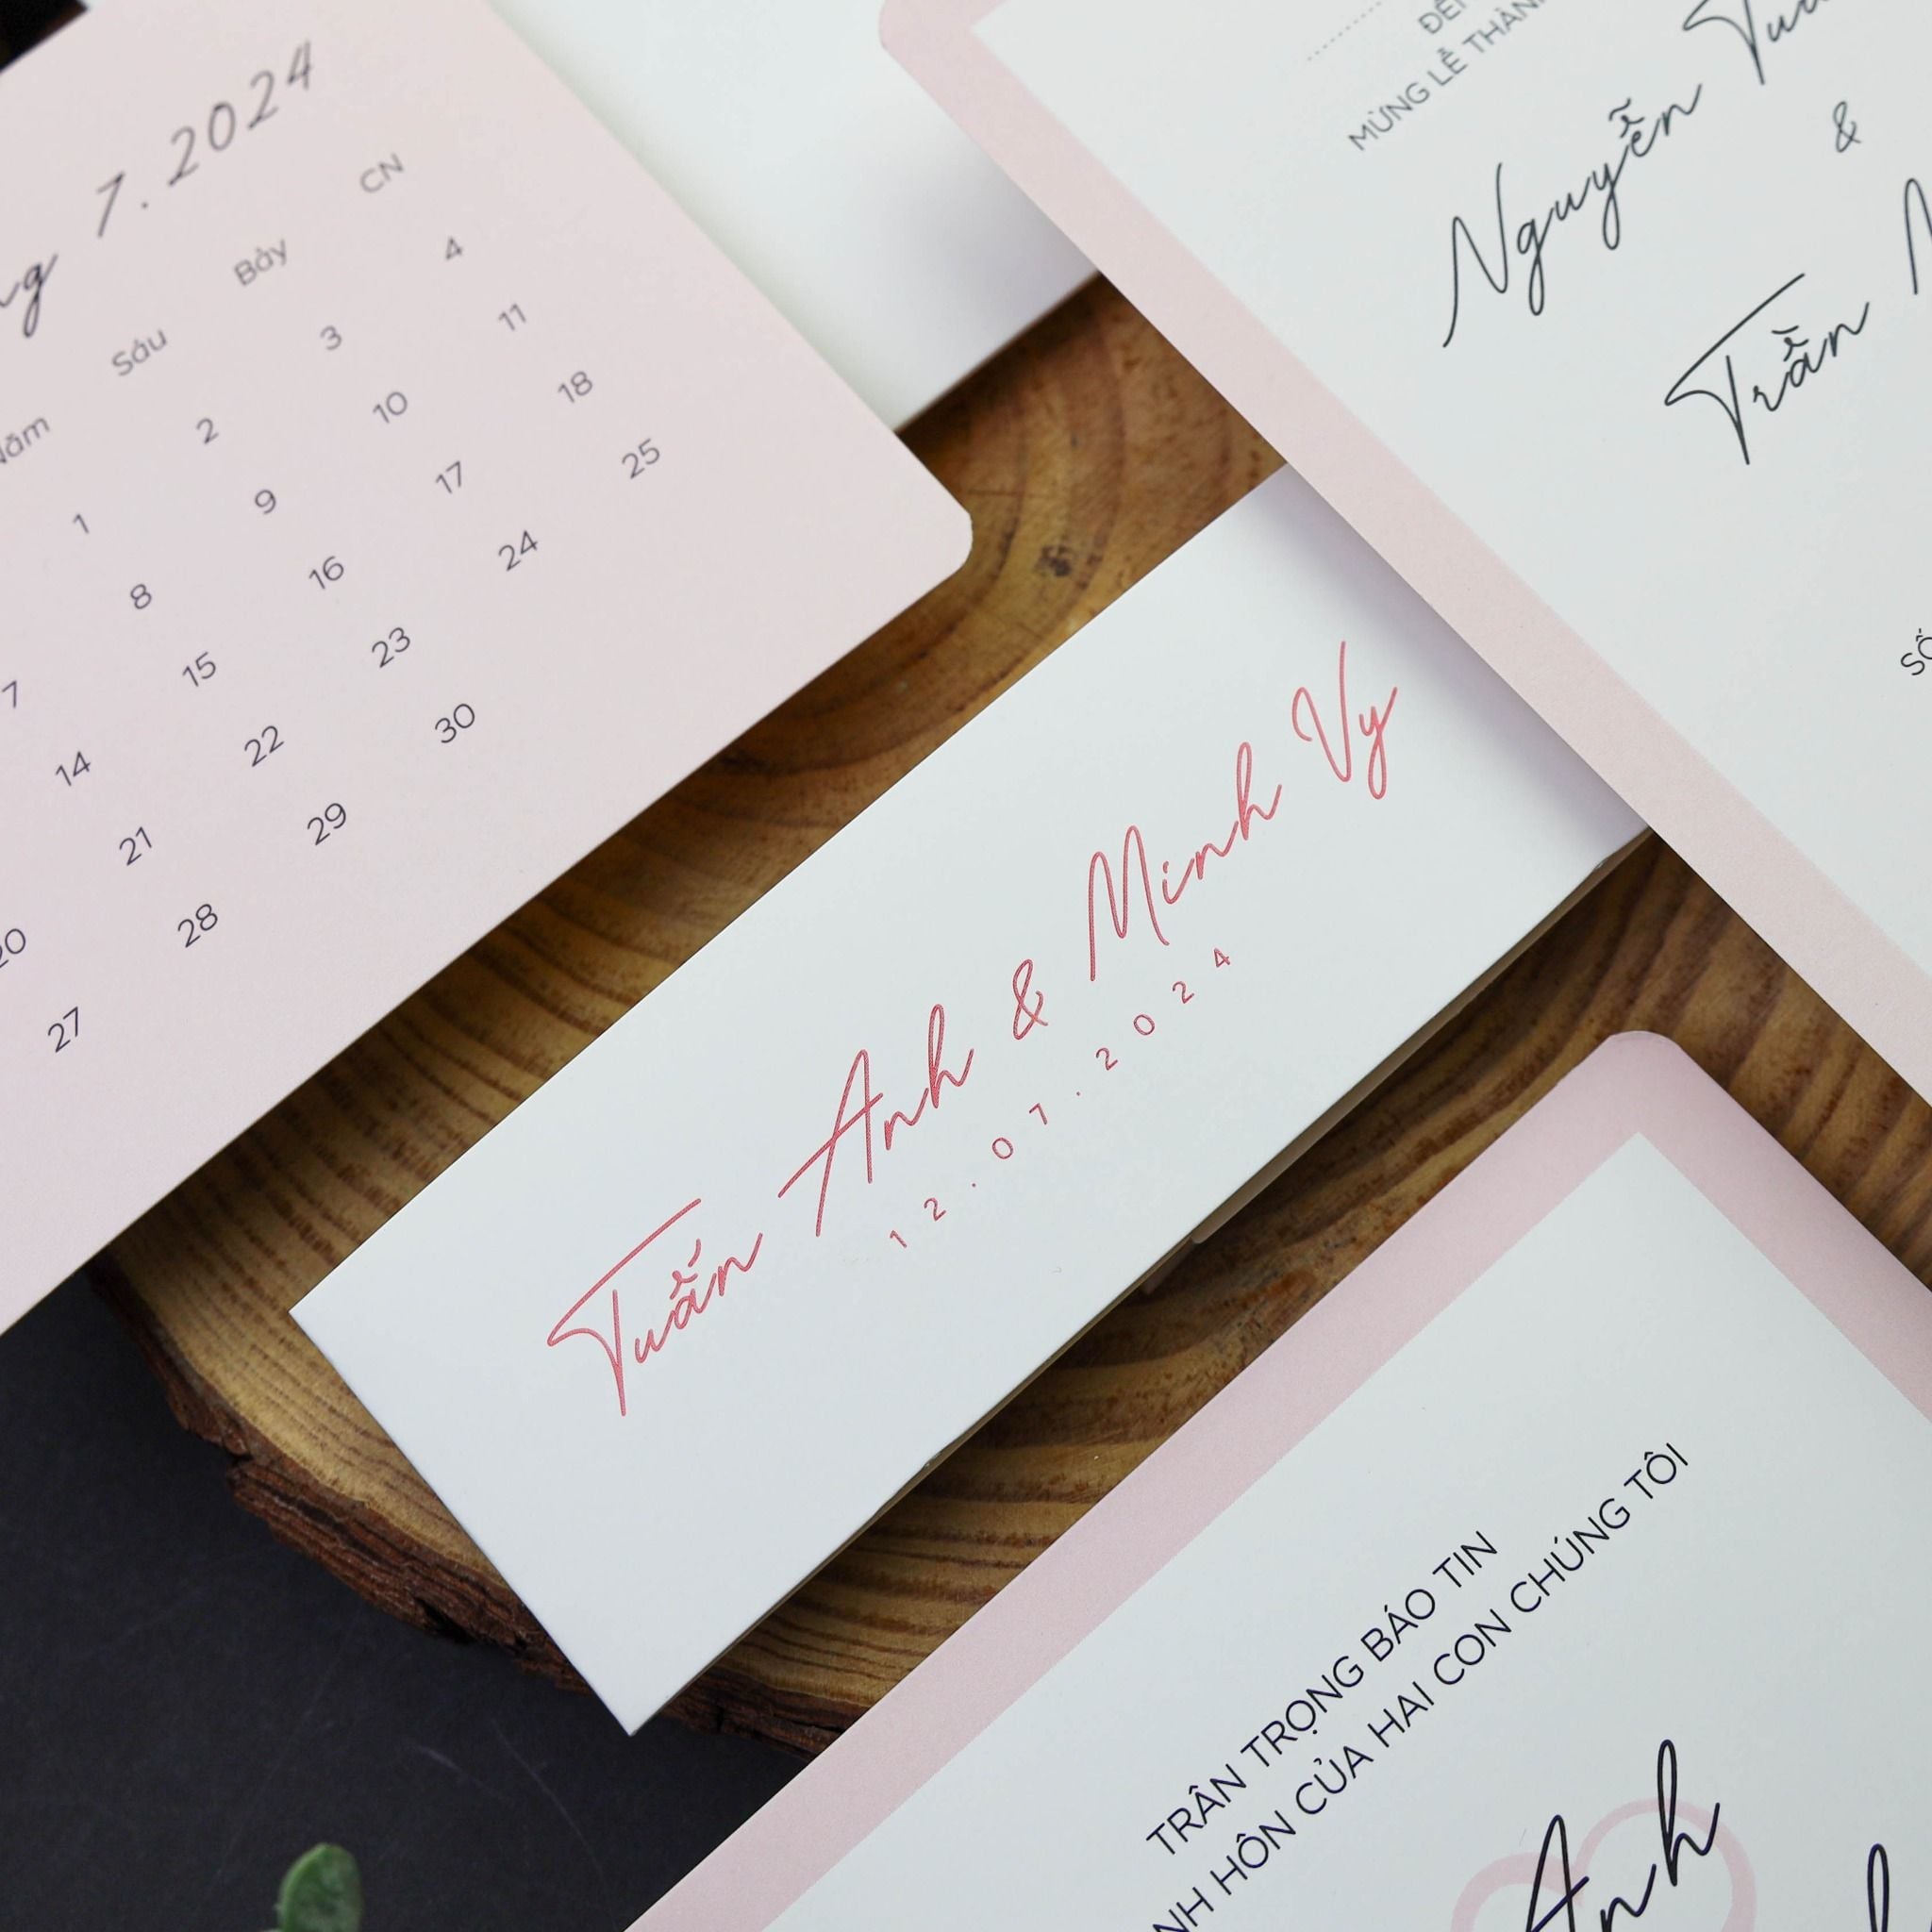 7.2024
Năm Sáu Bảy CN
1 2 3 4
7 8 9 10 11
14 15 16 17 18
20 21 22 23 24 25
27 28 29 30
MỪNG LỄ THÀNH
Nguyễn
&
Trần
Tuấn Anh & Minh Vy
12.07.2024
TRÂN TRỌNG BÁO TIN
HÔN CỦA HAI CON CHÚNG TÔI
Anh